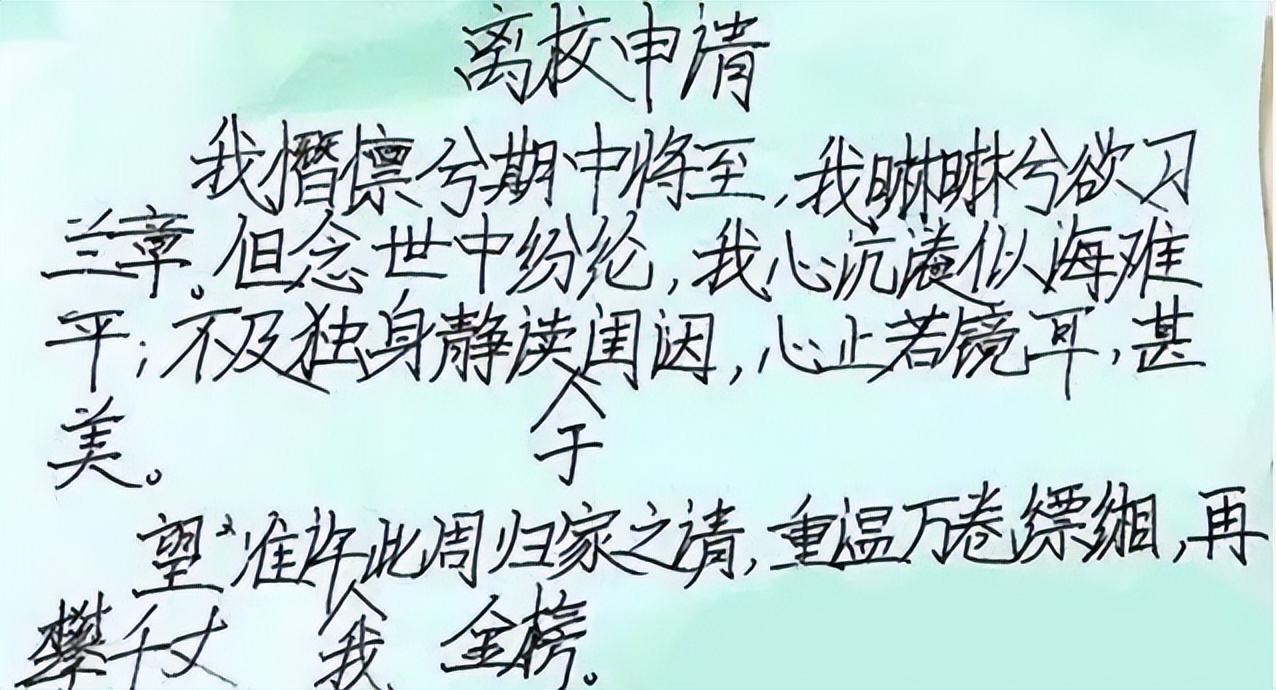 离校申请
我憯懔兮期中将至，我啉啉兮欲习
兰章。但念世中纷纶，我心沉濭似海难
平；不及独身静读于闺因，心止若镜耳，甚
美。
望准许我此周归家之请，重温万卷缥缃，再
攀千丈金榜。